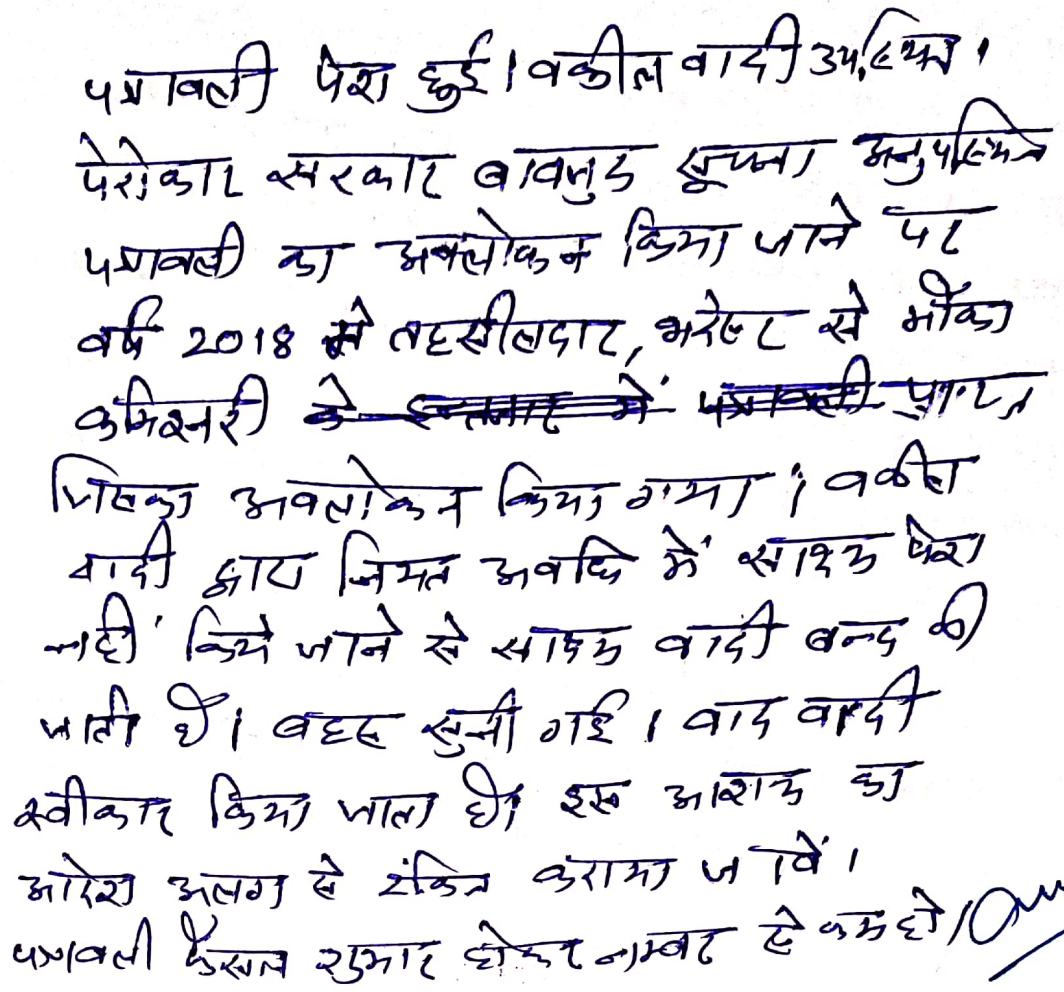 पत्रावली पेश हुई। वकील वादी उपस्थित।
पेरोकार सरकार बावजुद सूचना अनुपस्थित
पत्रावली का अवलोकन किया जाने पर
वर्ष 2018 से तहसीलदार, से मौका
कमिश्नरी के इन्तजार में पत्रावली प्राप्त
जिसका अवलोकन किया गया। वकील
वादी द्वारा नियत अवधि में साक्ष्य पेश
नहीं किये जाने से साक्ष्य वादी बन्द की
जाती है। बहस सुनी गई। वाद वादी
स्वीकार किया जाता है। इस आशय का
आदेश अलग से टंकित कराया जावें।
पत्रावली फैसल शुमार होकर नम्बर से कम हो।